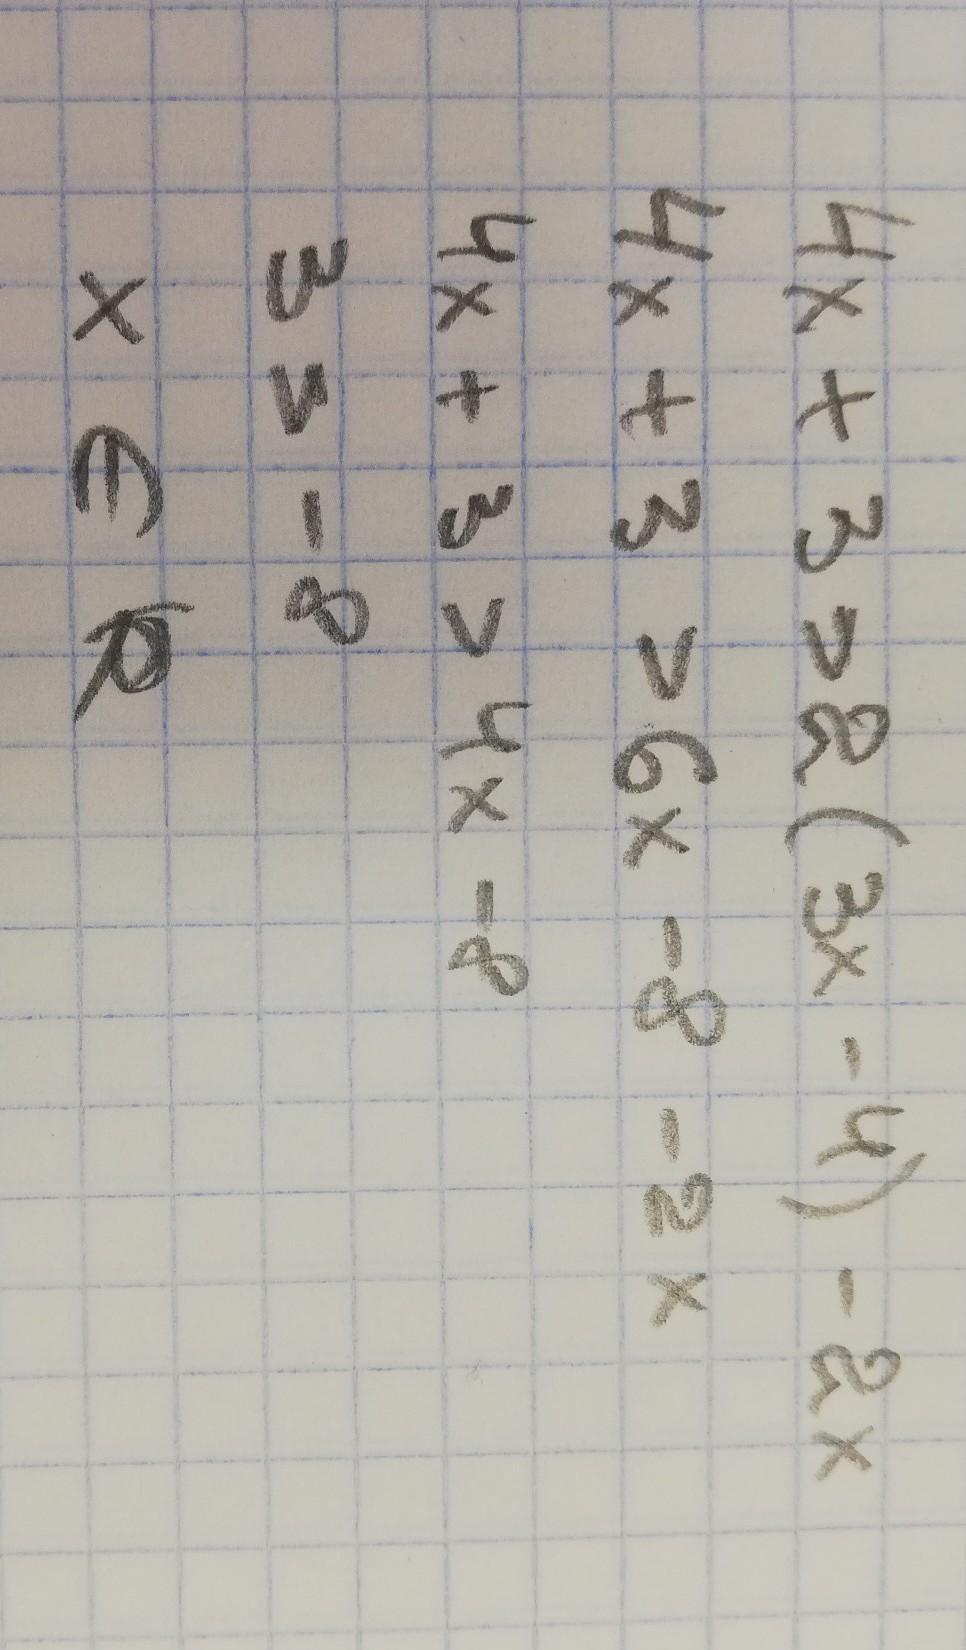 4x + 3 > 2(3x - 4) - 2x
4x + 3 > 6x - 8 - 2x
4x + 3 > 4x - 8
3 > - 8
x ∈ R